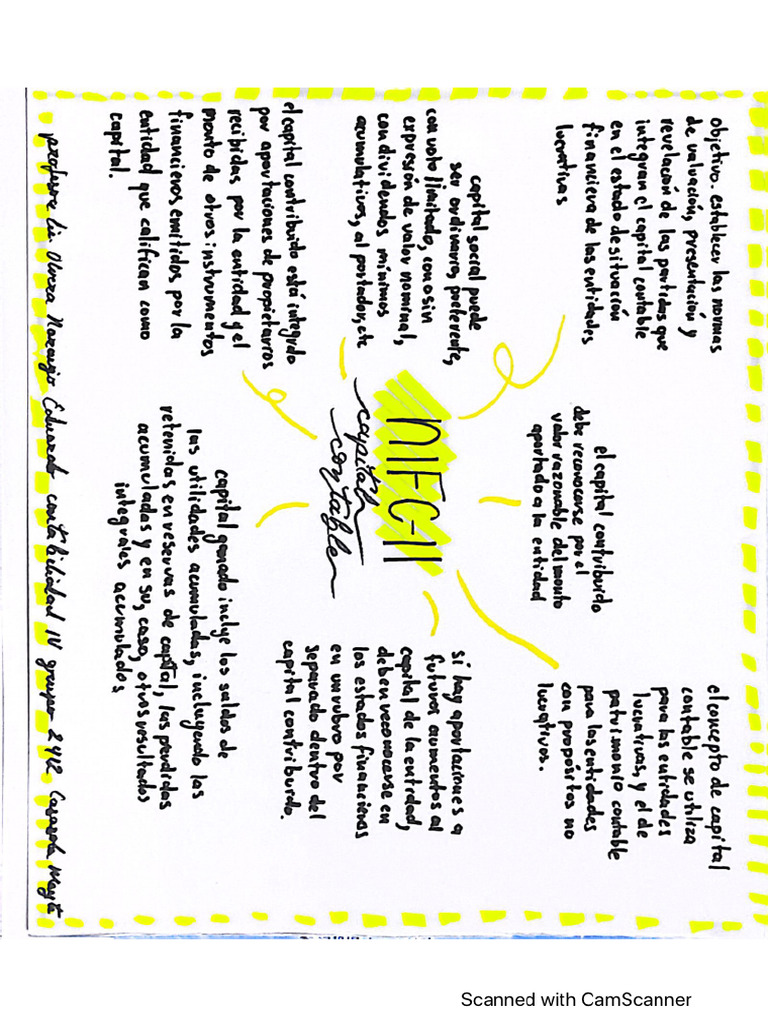 objetivo. establecer las normas
de valuación, presentación y
revelación de las partidas que
integran el capital contable
en el estado de situación
financiera de las entidades
lucrativas
el capital contribuido
debe reconocerse por el
valor razonable del monto
aportado a la entidad
el concepto de capital
contable se utiliza
para las entidades
lucrativas, y el de
patrimonio contable
para las entidades
con propósitos no
lucrativos.
capital social puede
ser ordinario, preferente,
con voto limitado, con o sin
expresión de valor nominal,
con dividendos mínimos
acumulativos, al portador, etc
NIF C-11
capital
contable
si hay aportaciones a
futuros aumentos al
capital de la entidad,
deben reconocerse en
los estados financieros
en un rubro por
separado dentro del
capital contribuido.
el capital contribuido está integrado
por aportaciones de propietarios
recibidas por la entidad y el
monto de otros instrumentos
financieros emitidos por la
entidad que califican como
capital.
capital ganado incluye los saldos de
las utilidades acumuladas, incluyendo las
retenidas en reservas de capital, las perdidas
acumuladas y en su, caso, otros resultados
integrales acumulados
profesor Lic. Olvera Naranjo Eduardo contabilidad IV grupo 2412
Scanned with CamScanner